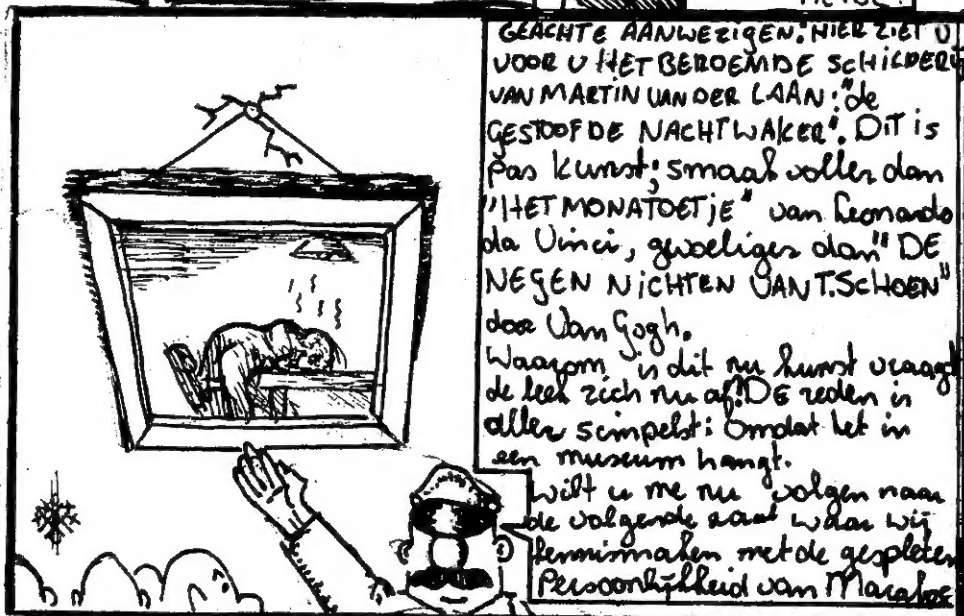 GEACHTE AANWEZIGEN. HIER ZIET U
VOOR U HET BEROEMDE SCHILDERIJ
VAN MARTIN VAN DER LAAN: "de
GESTOOFDE NACHTWAKER". DIT is
pas kunst; smaakvoller dan
"HET MONATOETJE" van Leonardo
da Vinci, gevoeliger dan "DE
NEGEN NICHTEN VAN T. SCHOEN"
door Van Gogh.
Waarom is dit nu kunst vraagt
de leek zich nu af? DE reden is
aller simpelst: Omdat het in
een museum hangt.
Wilt u me nu volgen naar
de volgende zaal waar wij
kennismaken met de gespleten
Persoonlijkheid van